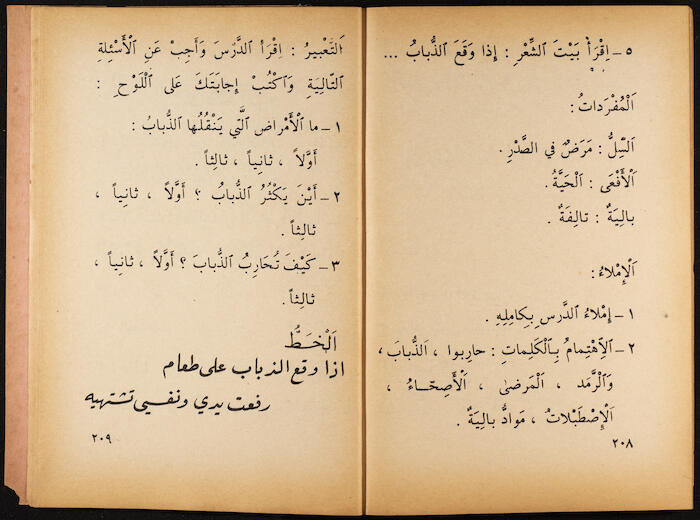 ٥ ـ اِقْرَأْ بَيْتَ الشِّعْرِ : إِذا وَقَعَ الذُّبابُ ...
اَلْمُفْرَداتُ :
اَلسِّلُّ : مَرَضٌ في الصَّدْرِ .
اَلْأَفْعَى : اَلْحَيَّةُ .
بالِيَةٌ : تالِفَةٌ .
اَلْإِمْلاءُ :
١ ـ إِمْلاءُ الدَّرْسِ بِكامِلِهِ .
٢ ـ اَلِاهْتِمامُ بِالْكَلِماتِ : حارِبوا ، اَلذُّبابَ ،
وَالرَّمَد ، اَلْمَرضىٰ ، اَلْأَصِحّاءُ ،
اَلْإِصْطَبْلاتُ ، مَوادُّ بالِيَةٌ .
٢٠٨
اَلتَّعْبيرُ : اِقْرَأِ الدَّرْسَ وَأَجِبْ عَنِ الْأَسْئِلةِ
التّالِيَةِ وَاكْتُبْ إِجابَتَكَ عَلى اللَّوْحِ :
١ ـ ما الْأَمْراضُ الَّتي يَنْقُلُها الذُّبابُ :
أَوَّلاً ، ثانِياً ، ثالِثاً .
٢ ـ أَيْنَ يَكْثُرُ الذُّبابُ ؟ أَوَّلاً ، ثانِياً ،
ثالِثاً .
٣ ـ كَيْفَ تُحارِبُ الذُّبابَ ؟ أَوَّلاً ، ثانِياً ،
ثالِثاً .
اَلْخَطُّ
اذا وقع الذباب على طعام
رفعت يدي ونفسي تشتهيه
٢٠٩